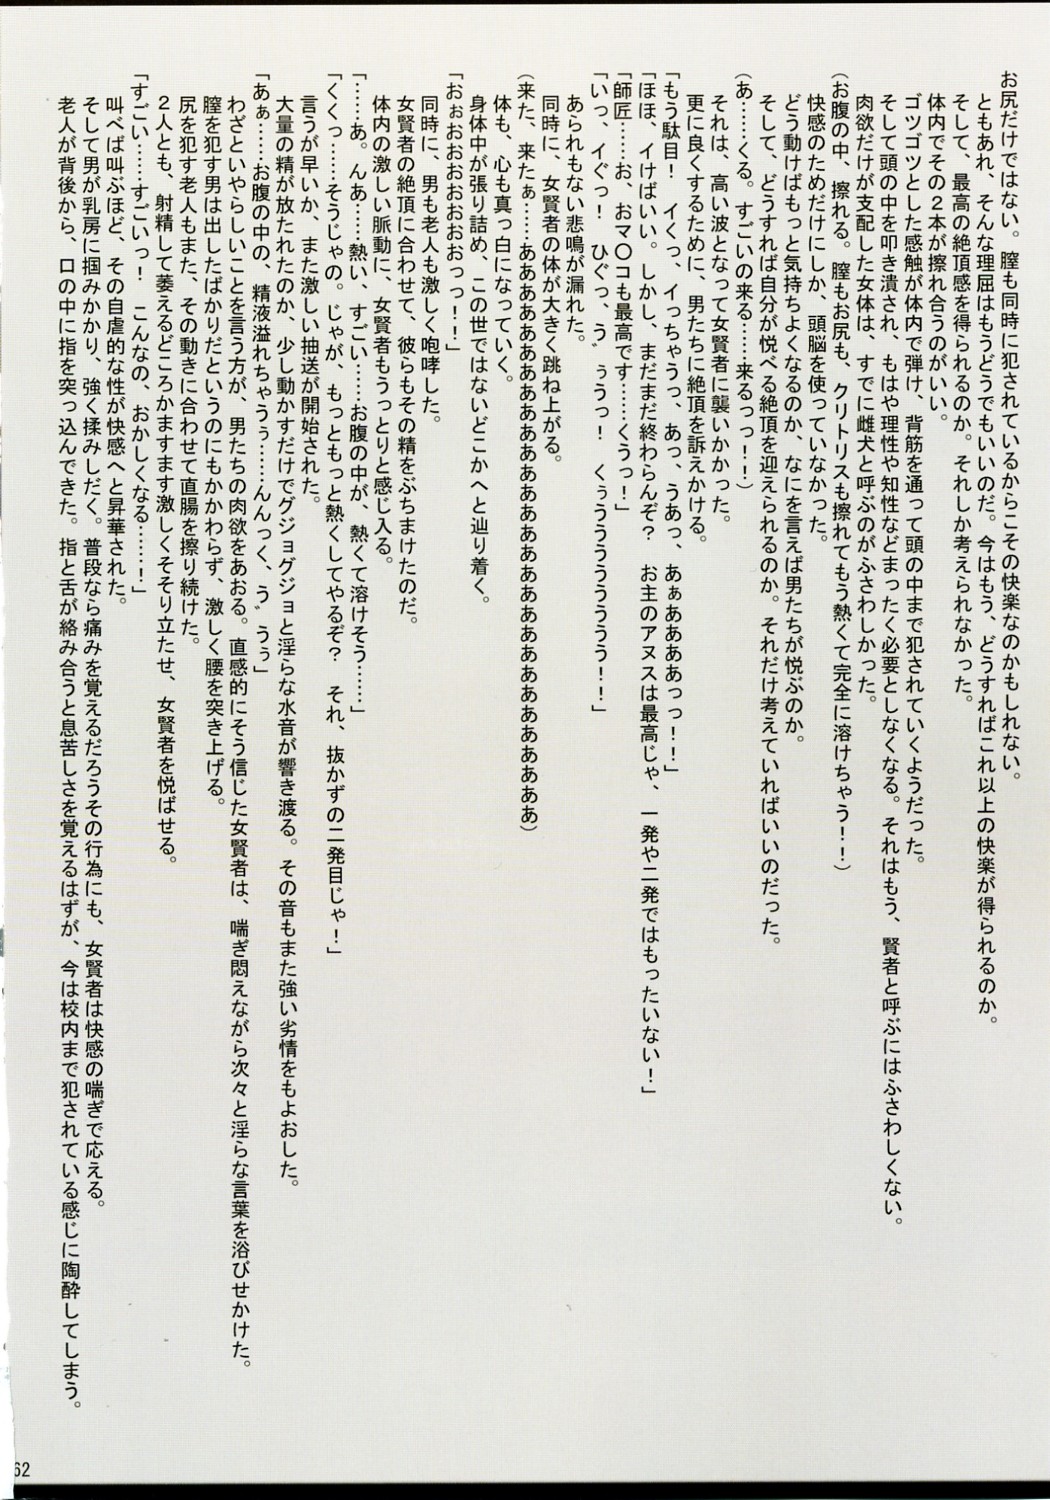 お尻だけではない。膣も同時に犯されているからこその快楽なのかもしれない。
ともあれ、そんな理屈はもうどうでもいいのだ。今はもう、どうすればこれ以上の快楽が得られるのか。
そして、最高の絶頂感を得られるのか。それしか考えられなかった。
体内でその２本が擦れ合うのがいい。
ゴツゴツとした感触が体内で弾け、背筋を通って頭の中まで犯されていくようだった。
そして頭の中を叩き潰され、もはや理性や知性などまったく必要としなくなる。それはもう、賢者と呼ぶにはふさわしくない。
肉欲だけが支配した女体は、すでに雌犬と呼ぶのがふさわしかった。
（お腹の中、擦れる。膣もお尻も、クリトリスも擦れてもう熱くて完全に溶けちゃう！！）
快感のためだけにしか、頭脳を使っていなかった。
どう動けばもっと気持ちよくなるのか、なにを言えば男たちが悦ぶのか。
そして、どうすれば自分が悦べる絶頂を迎えられるのか。それだけ考えていればいいのだった。
（あ……くる。すごいの来る……来るっっ！！）
それは、高い波となって女賢者に襲いかかった。
更に良くするために、男たちに絶頂を訴えかける。
「もう駄目！　イくっ、イっちゃうっ、あっ、うあっ、あぁああああっっ！！」
「ほほ、イけばいい。しかし、まだまだ終わらんぞ？　お主のアヌスは最高じゃ、一発や二発ではもったいない！」
「師匠……お、おマ〇コも最高です……くうっ！」
「いっ、イぐっ！　ひぐっ、う゛ぅうっ！　くぅううううううう！！」
あられもない悲鳴が漏れた。
同時に、女賢者の体が大きく跳ね上がる。
（来た、来たぁ……ああああああああああああああああああああああああああああああ）
体も、心も真っ白になっていく。
身体中が張り詰め、この世ではないどこかへと辿り着く。
「おぉおおおおおおおっっ！！」
同時に、男も老人も激しく咆哮した。
女賢者の絶頂に合わせて、彼らもその精をぶちまけたのだ。
体内の激しい脈動に、女賢者もうっとりと感じ入る。
「……あ。んあ……熱い、すごい……お腹の中が、熱くて溶けそう……」
「くくっ……そうじゃの。じゃが、もっともっと熱くしてやるぞ？　それ、抜かずの二発目じゃ！」
言うが早いか、また激しい抽送が開始された。
大量の精が放たれたのか、少し動かすだけでグジョグジョと淫らな水音が響き渡る。その音もまた強い劣情をもよおした。
「あぁ……お腹の中の、精液溢れちゃうぅ……んんっく、う゛うぅ」
わざといやらしいことを言う方が、男たちの肉欲をあおる。直感的にそう信じた女賢者は、喘ぎ悶えながら次々と淫らな言葉を浴びせかけた。
膣を犯す男は出したばかりだというのにもかかわらず、激しく腰を突き上げる。
尻を犯す老人もまた、その動きに合わせて直腸を擦り続けた。
２人とも、射精して萎えるどころかますます激しくそそり立たせ、女賢者を悦ばせる。
「すごい……すごいっ！　こんなの、おかしくなる……！」
叫べば叫ぶほど、その自虐的な性が快感へと昇華された。
そして男が乳房に掴みかかり、強く揉みしだく。普段なら痛みを覚えるだろうその行為にも、女賢者は快感の喘ぎで応える。
老人が背後から、口の中に指を突っ込んできた。指と舌が絡み合うと息苦しさを覚えるはずが、今は校内まで犯されている感じに陶酔してしまう。
62